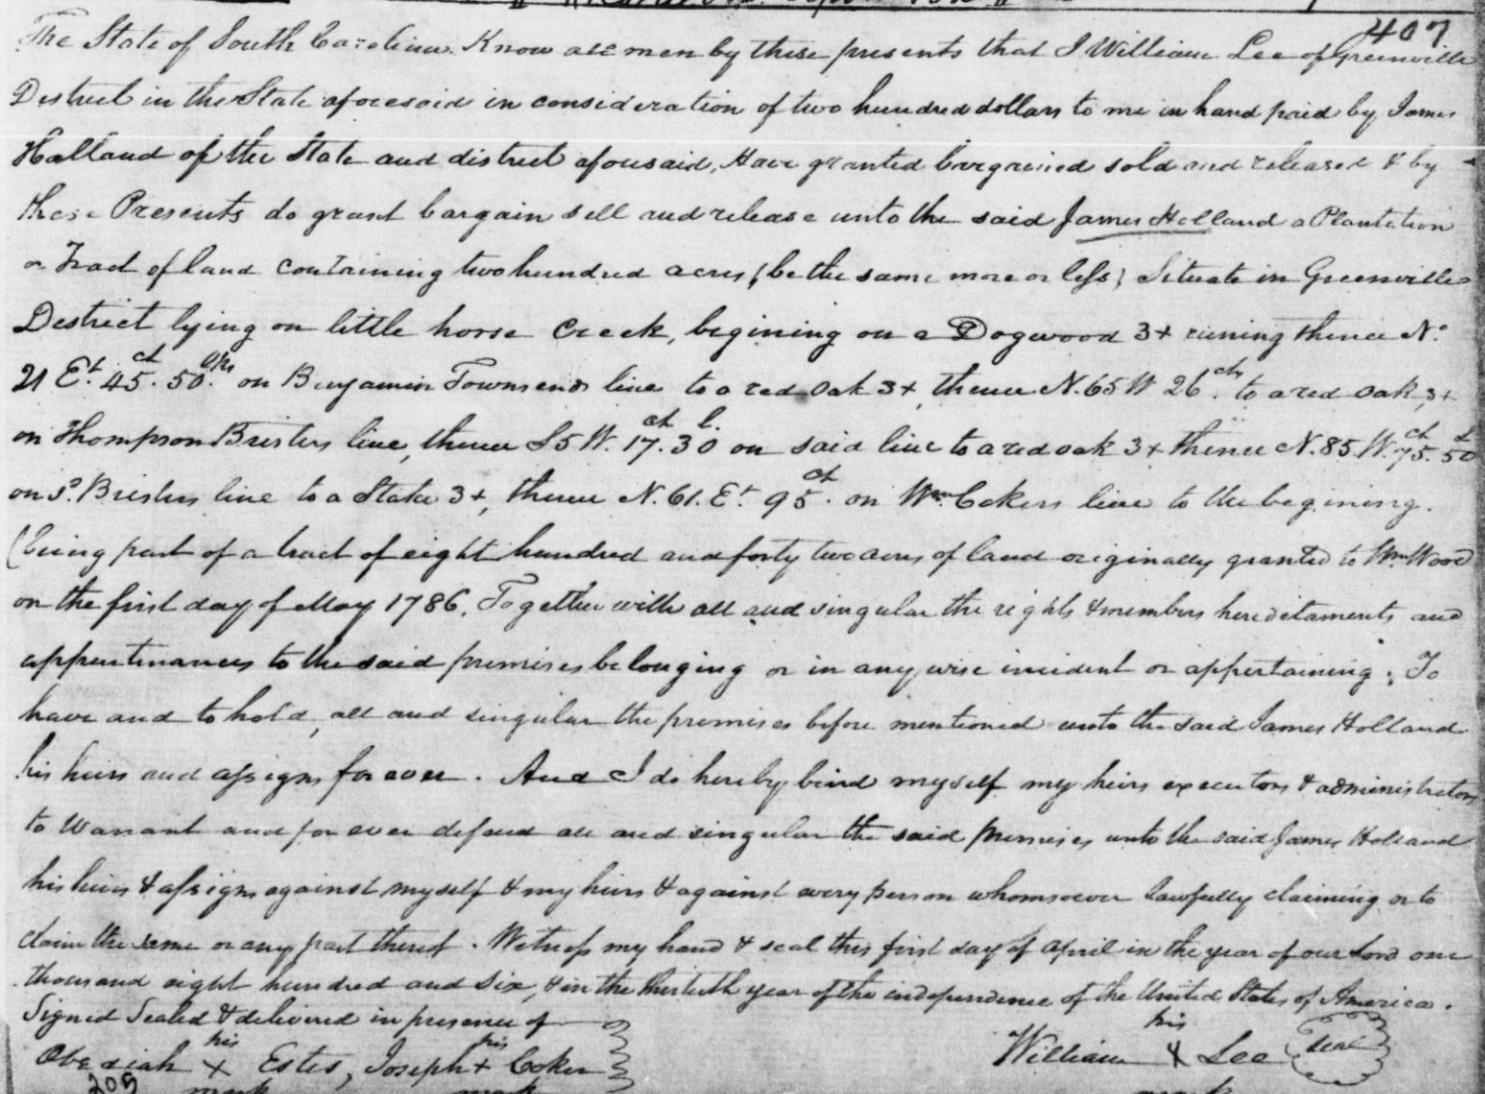 407
The State of South Carolina. Know all men by these presents that I William Lee of Greenville
District in the State aforesaid in consideration of two hundred dollars to me in hand paid by James
Holland of the State and district aforesaid, Have granted bargained sold and released & by
these Presents do grant bargain sell and release unto the said James Holland a Plantation
or Tract of land containing two hundred acres (be the same more or less) Situate in Greenville
District lying on little horse Creek, begining on a Dogwood 3+ runing thence No.
21 Et. 45 ch. 50 on Benjamin Townsends line to a red oak 3+, thence N. 65 W 26 chs. to a red oak 3+
on Thompson Bristers line, thence S5 W. 17 ch. 30 l. on said line to a red oak 3+ thence N. 85 W. 75 ch. 50 l
on sd. Bristers line to a Stake 3+, thence N. 61. Et 95 ch. on Wm. Cokers line to the begining.
(being part of a tract of eight hundred and forty two acres of land originally granted to Wm Wood
on the first day of May 1786. Together with all and singular the rights & members hereditaments and
appertinances to the said premises belonging or in any wise incident or appertaining; To
have and to hold, all and singular the premises before mentioned unto the said James Holland
his heirs and assigns for ever. And I do hereby bind myself my heirs executors & administrators
to Warrant and for ever defend all and singular the said premises unto the said James Holland
his heirs & assigns against myself & my heirs & against every person whomsoever lawfully claiming or to
claim the same or any part thereof. Witness my hand & seal this first day of April in the year of our Lord one
thousand eight hundred and six, & in the thirtieth year of the independence of the United States of America.
Signed Sealed & delivered in presence of
his his his
Obediah X Estes, Joseph + Coker William X Lee seal
205 mark mark mark